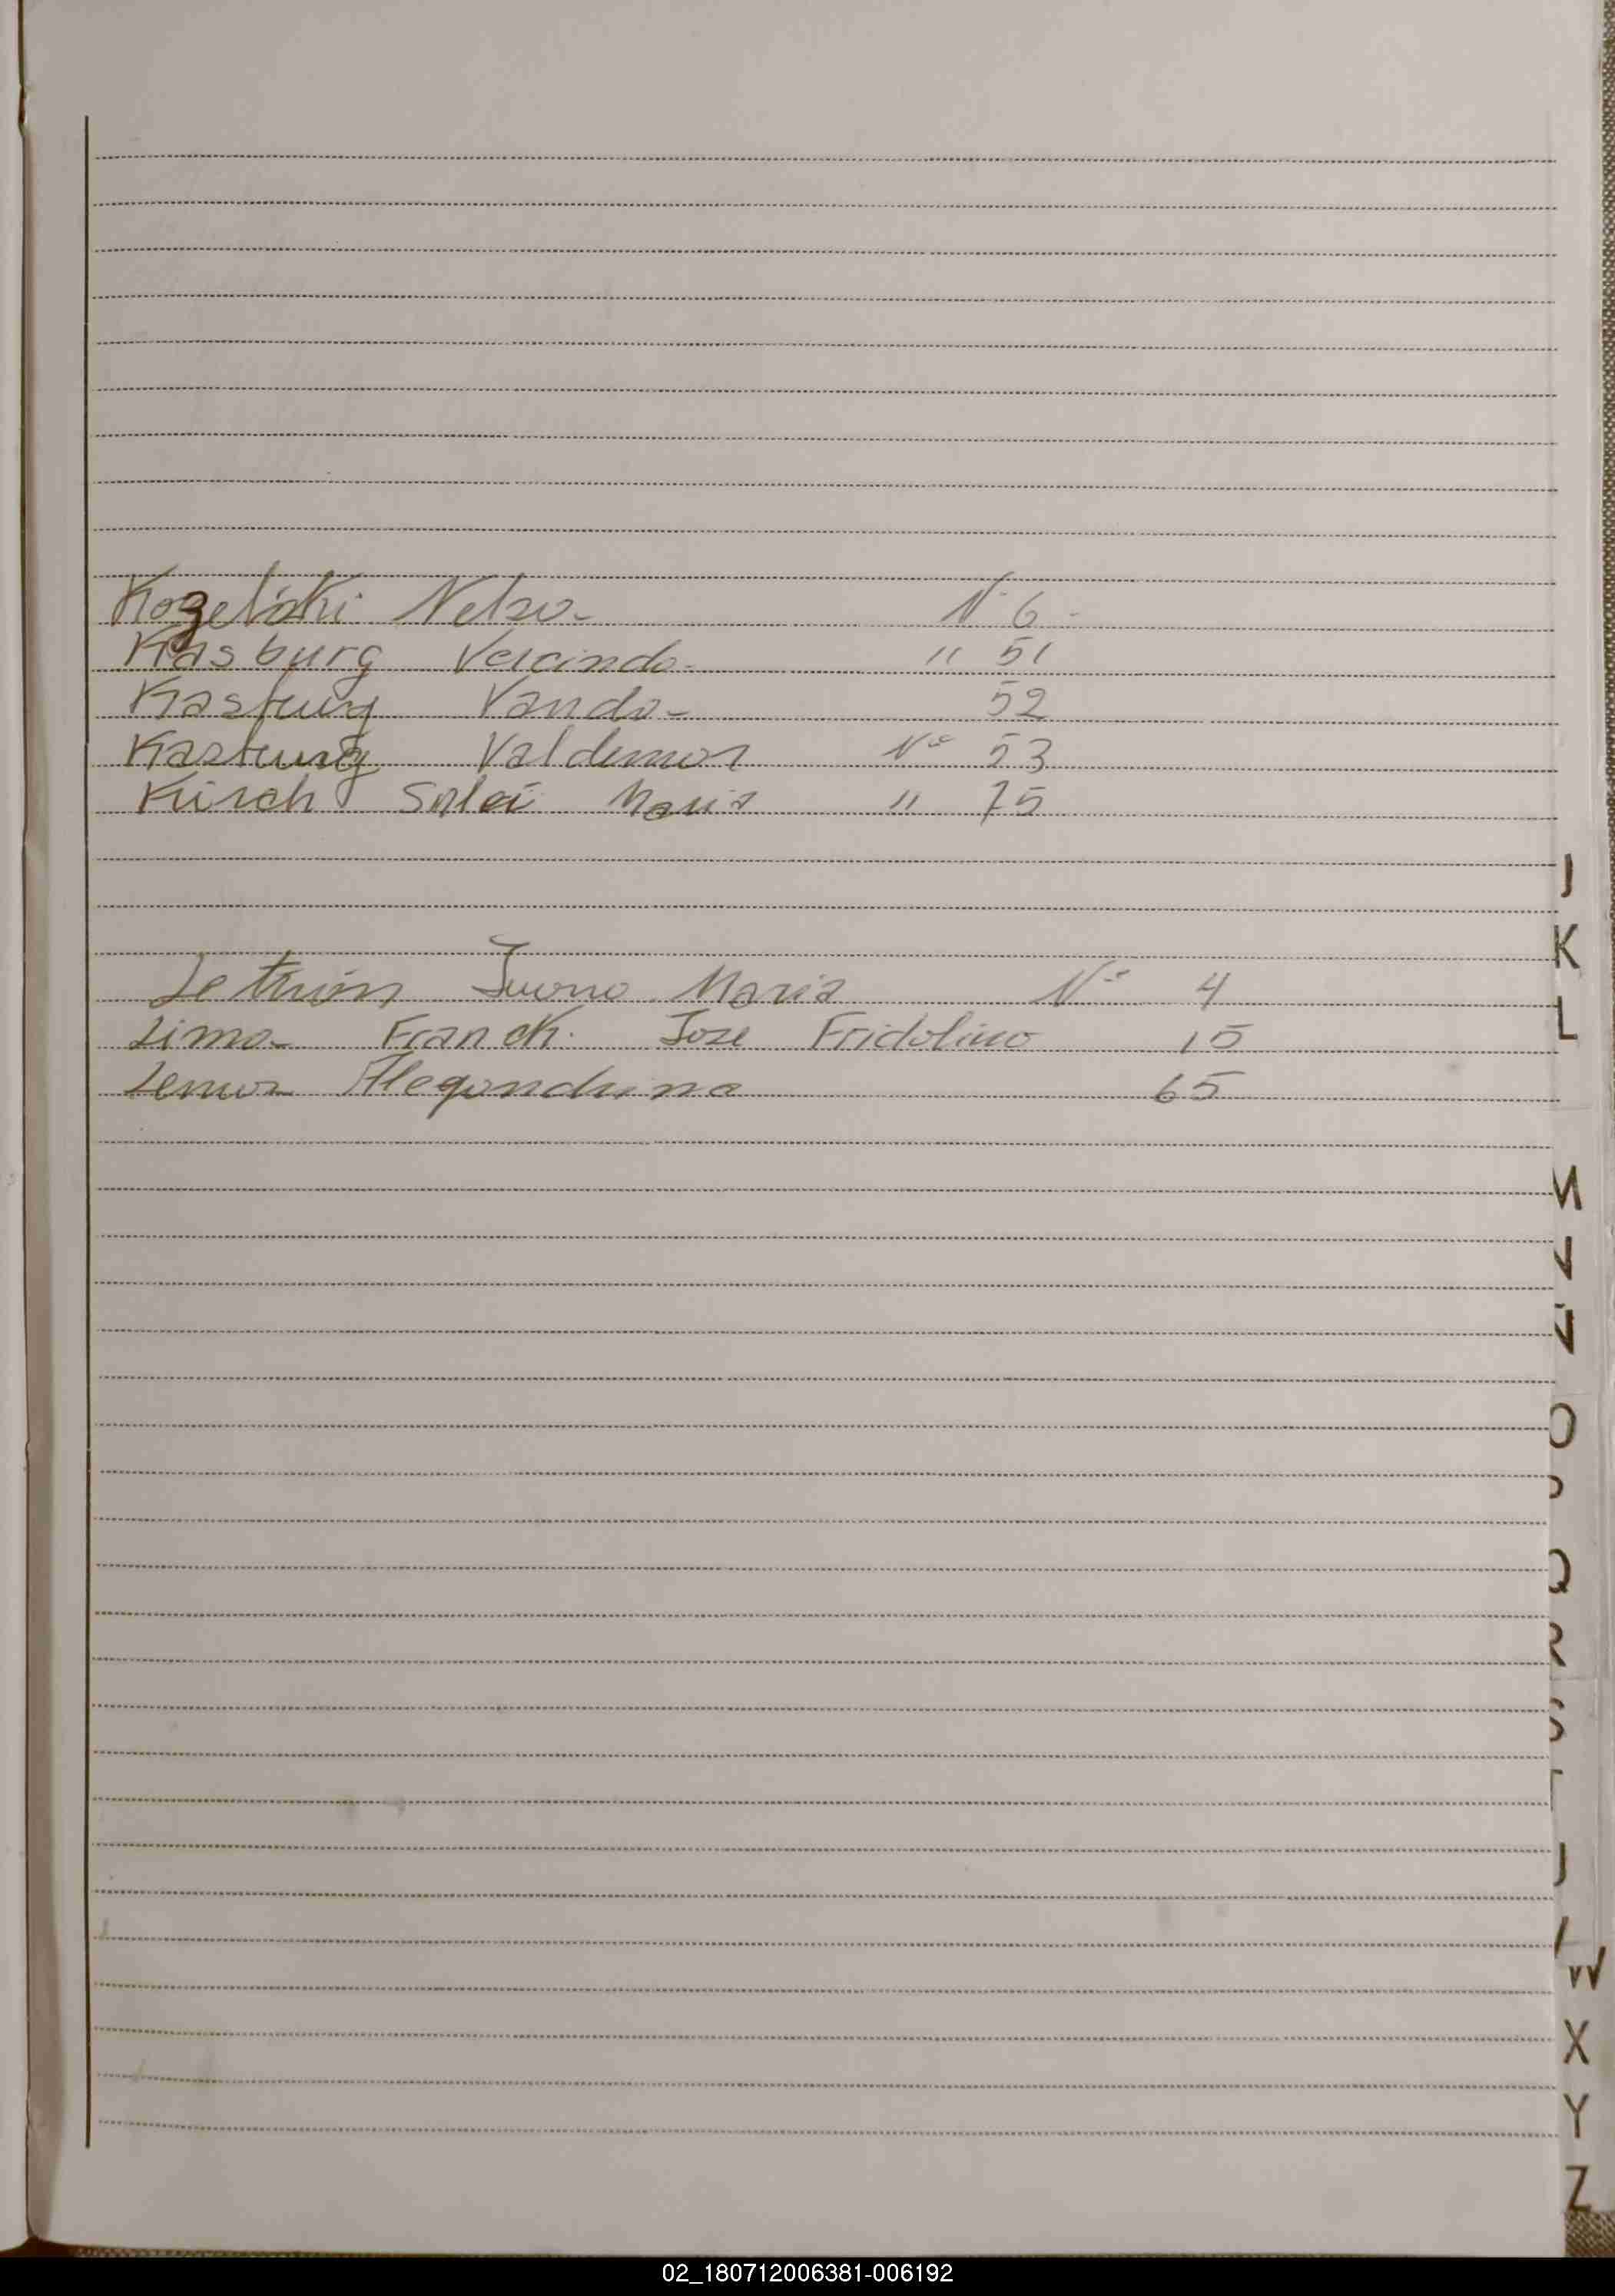 Kozelski Nelso- N. 6 -
Kasburg Vercindo- " 51
Kasburg Vando- 52
Kasburg Valdemor Nº 53
Kirsch Solei Maria " 75
J
K
Ivone Maria Nº 4
L
Lima- Franck. Jose Fridolino 15
Alegondina 65
M
N
Ñ
O
P
Q
R
S
T
U
V
W
X
Y
Z
02_180712006381-006192